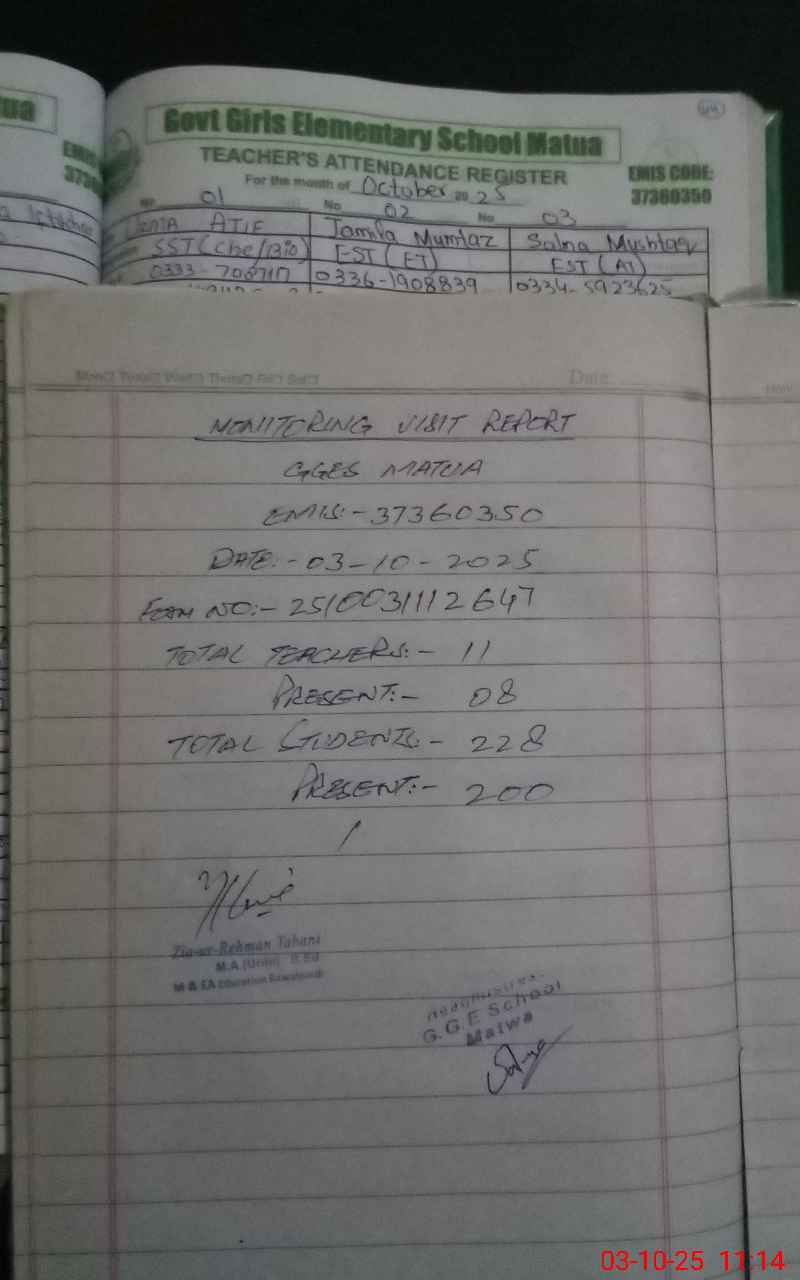 44
Govt Girls Elementary School Matua
TEACHER'S ATTENDANCE REGISTER
EMIS CODE:
37360350
For the month of October 2025
01 No 02 No 03
ATIF Jamila Mumtaz Salma Mushtaq
SST (Che/Bio) EST (ET) EST (AT)
0336-1908839 0334-5923625
Date:
MONITORING VISIT REPORT
GGES MATUA
EMIS:- 37360350
DATE:- 03-10-2025
FORM NO:- 2510031112647
TOTAL TEACHERS:- 11
PRESENT:- 08
TOTAL STUDENTS:- 228
PRESENT:- 200
Zia-ur-Rehman Tahani
M.A (Urdu) B.Ed
M & EA Education Rawalpindi
Headmistress
G.G.E School
Matwa
03-10-25 11:14